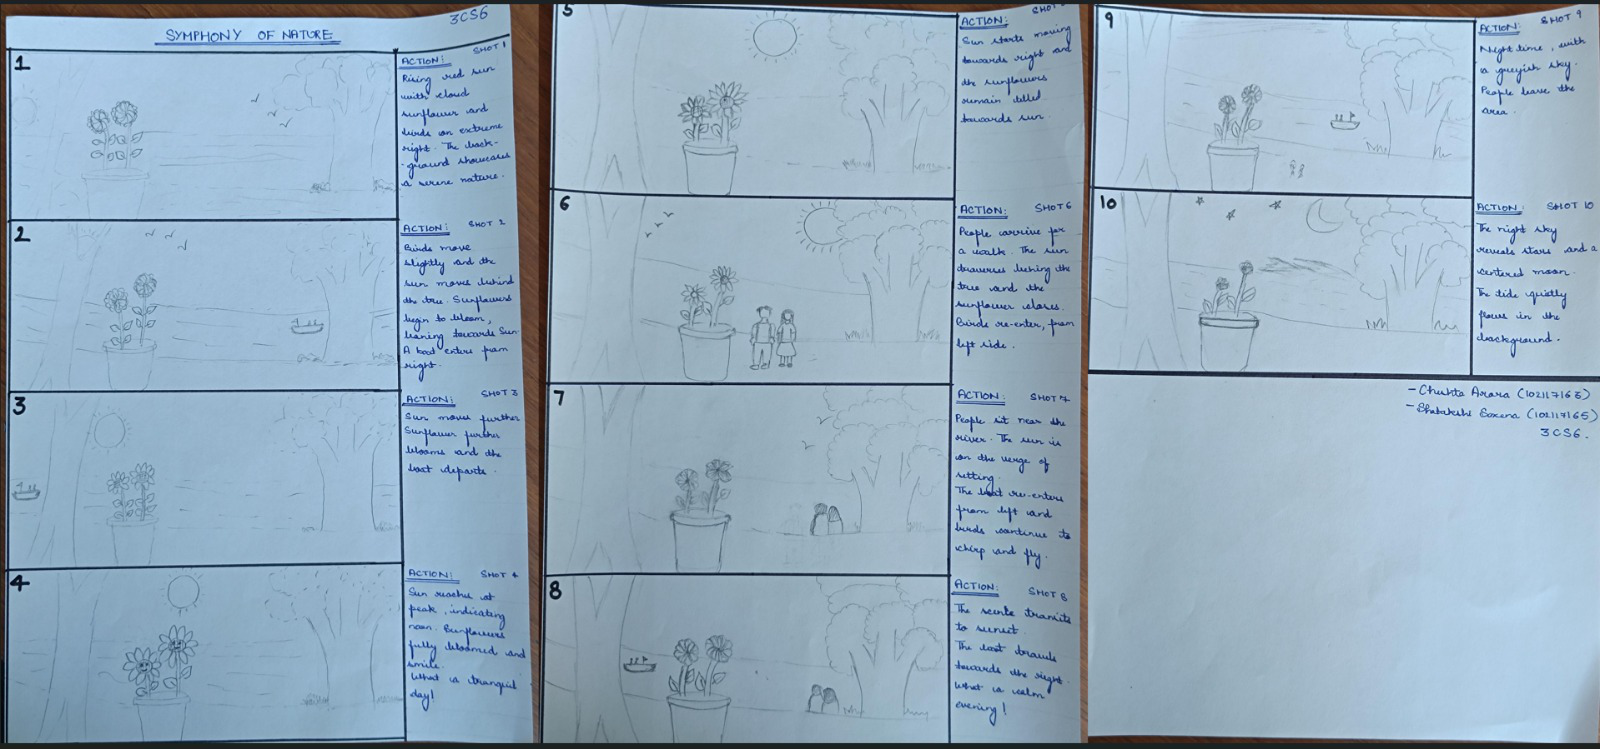 3CS6
SYMPHONY OF NATURE
1
SHOT 1
ACTION:
Rising red sun
with cloud
sunflower and
birds on extreme
right. The back-
-ground showcases
a serene nature.
2
SHOT 2
ACTION:
Birds move
slightly and the
sun moves behind
the tree. Sunflowers
begin to bloom,
leaning towards Sun.
A boat enters from
right.
3
SHOT 3
ACTION:
Sun moves further
Sunflower further
blooms and the
boat departs.
4
SHOT 4
ACTION:
Sun reaches at
peak, indicating
noon. Sunflowers
fully bloomed and
smile.
What a tranquil
day!
5
ACTION:
Sun starts moving
towards right and
the sunflowers
remain tilted
towards sun.
6
ACTION: SHOT 6
People arrive for
a walk. The sun
traverses behing the
tree and the
sunflower closes.
Birds re-enter, from
left side.
7
ACTION: SHOT 7
People sit near the
river. The sun is
on the verge of
setting.
The boat re-enters
from left and
birds continue to
chirp and fly.
8
ACTION: SHOT 8
The scene transits
to sunset.
The boat travels
towards the right.
What a calm
evening!
9
ACTION: SHOT 9
Night time, with
a greyish sky.
People leave the
area.
10
ACTION: SHOT 10
The night sky
reveals stars and a
centered moon.
The tide quietly
flows in the
background.
- Arora (102117163)
- Saxena (102117165)
3CS6.